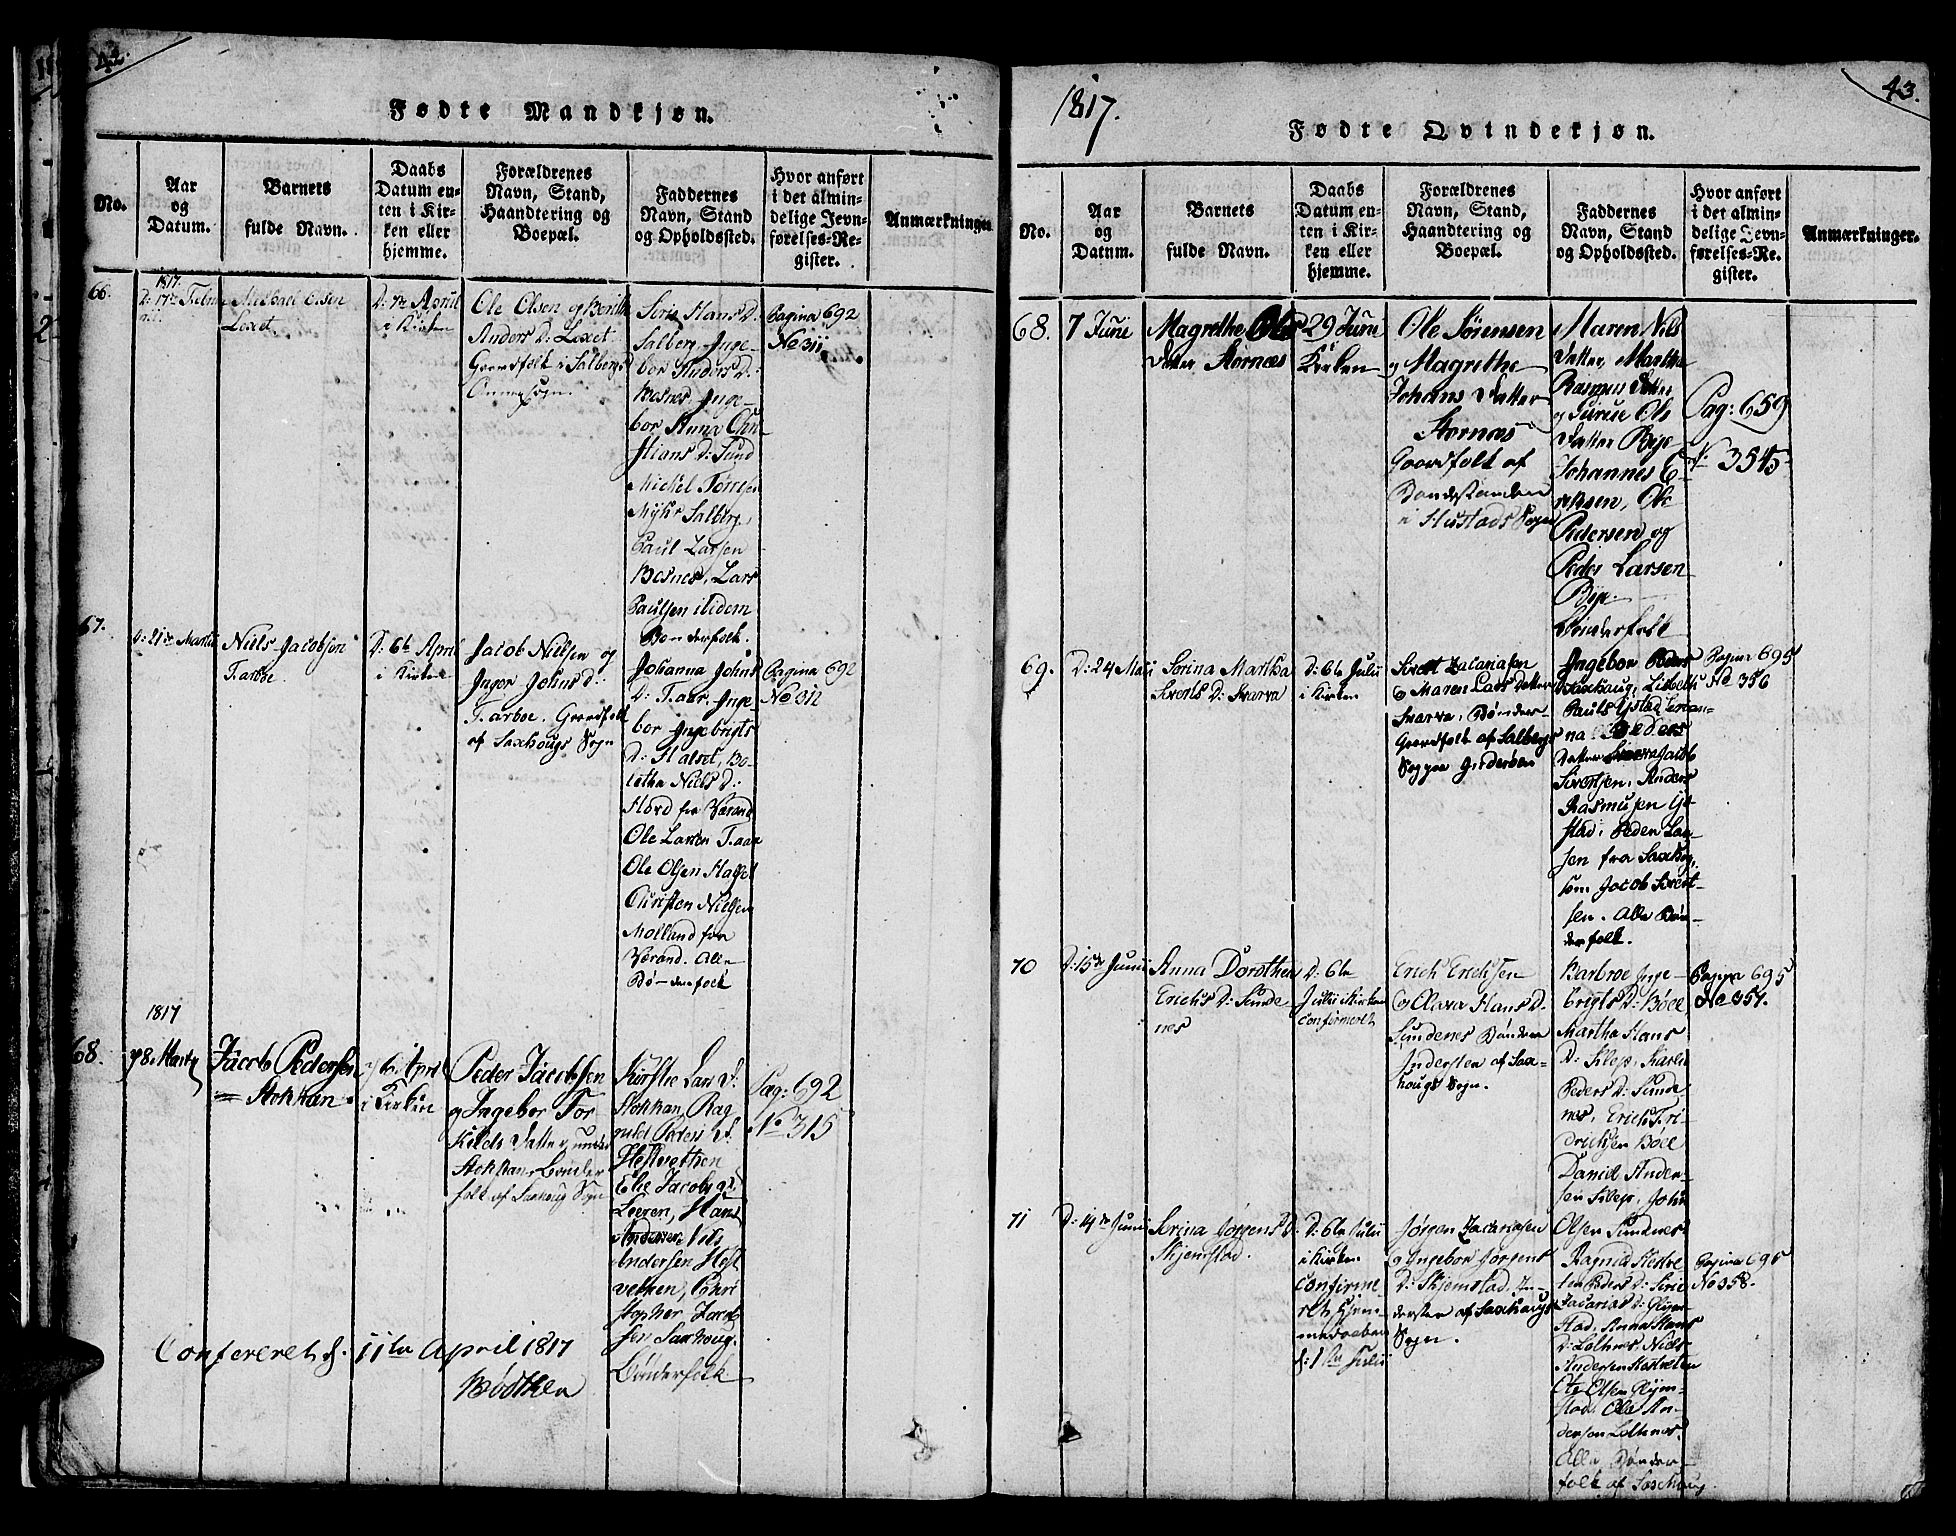 42.
Fødte Mandkjøn.
No.
Aar
og
Datum.
Barnets
fulde Navn.
Daabs
Datum en-
ten i Kir-
ken eller
hjemme.
Forældrenes
Navn, Stand,
Haandtering og
Boepæl.
Faddernes
Navn, Stand
og Opholdssted.
Hvor anført
i det almin-
delige Jevn-
førelses-Re-
gister.
Anmærkninger
66.
1817.
Michael Olsen
Loxet.
D: 7de April
i Kirken
Ole Olsen og Berith
Anders D: Loxet
Gaardfolk i Salbergs
Annexsogn.
Siri Hans D:
Salberg, Inge-
bor Anders D:
Besnes, Inge-
bor Anna Chri-
stians D: Sund
Michel Torresen
Myhr Salberg,
Paul Larsen
Besnes, Lars
Paulsen ibidem
Bønderfolk.
Pagina 692
No 311
67.
D: 21de Martii
Niels Jacobsen
Tarboe.
D: 6te April
i Kirken
Jacob Nielsen og
Inger Johns D:
Tarboe. Gaardfolk
af Saxhougs Sogn
Johanna Johns
D: Taar. Inge-
bor Ingebrigts
D: Halset, Bo-
letha Niels D:
Hord fra Værand
Ole Larsen Taar
Ole Olsen Halset
Christen Nielsen
Molland fra
Værand. Alle
Bønderfolk
Pagina 692
No 312
1817
68.
Jacob Pedersen
Stokkan
6 April
i Kirken
Peder Jacobsen
og Ingebor Tor
Kilds Datter,
Stokkan, Bønder
folk af Saxhoug Sogn
Kirstie Lars D.
Stokkan, Rag
nild Peders D.
Hestvethen
Elie Jacobs D.
Leeren, Hans
Andersen, Nils
Andersen Hest
vethen, Chri
stopher Jacob
sen Saxhoug.
Bønderfolk
Pag: 692
No 315
Confereret d. 11te April 1817
Bødtker
1817.
43.
Fødte Qvindekjøn.
No.
Aar
og
Datum.
Barnets
fulde Navn.
Daabs
Datum en-
ten i Kir-
ken eller
hjemme.
Forældrenes
Navn, Stand,
Haandtering og
Boepæl.
Faddernes
Navn, Stand
og Opholdssted.
Hvor anført
i det almin-
delige Jevn-
førelses-Re-
gister.
Anmærkninger.
68.
7 Junii
Magrethe Ols
datter Stornæs
29 Junii
Kirken
Ole Sørensen
og Magrethe
Johans Datter
Stornæs
Gaardfolk af
Bondestanden
i Hustads Sogn
Maren Nils
datter, Marithe
Rasmus datter
og Siriu Ols
datter Bye
Johannes E-
richsen, Ole
Pedersen og
Peder Larsen
Bye.
Bønderfolk
Pag: 659
No 3545
69.
D: 24 Maii
Serina Martha
Siverts D: Skarva
D: 6te Julii
i Kirken
Sivert Zacariasen
og Maren Lars datter
Skarva, Bønder-
Gaardfolk af Salbergs
Sogn Inderøen
Ingebor Peders
Saxhaug, Lisbeth
Pauls Ystad,
na Peders
Datter Jacob
Sivertsen, Anders
Rasmusen Yst-
stad, Peder Lar-
sen fra Saxhoug,
som Jacob Sivert-
sen. Alle Bøn-
derfolk.
Pagina 695
No 356
70
D: 15de Junii
Anna Dorothea
Erichs D: Sunde
nes
D: 6te
Julii i Kirken
Confirmeret
Erich Erichsen
og Clara Hans D.
Sundenes Bønder
Indersten af Sax-
hougs Sogn.
Barbroe Inge-
brigts D: Böee
Martha Hans
D: Silep, Karen
Peders D: Sunde-
nes, Erich Fri-
drichsen Böee
Daniel Ander-
sen Silep, John
Olsen Sundnes
Pagina 695
No 357.
71
D: 14de Junii
Serina Jørgens D.
Skjemstad.
D: 6te Julii
i Kirken
Confirme
ret, hjem
medøebt
d: 1te Julii
Jørgen Zachriasen
og Ingebor Jørgens
D: Skjemstad, In-
dersten af Saxhougs
Sogn.
Ragnild Hestve
ten Peders D: Serie
Zacarias D: Skjem
stad. Anna Hans
D: Lothnes Niels
Andersen Hestveten
Ole Olsen Skjem-
stad. Ole An-
dersen Lothnes.
Alle Bønder-
folk af Saxhoug
Pagina 695
No 358.